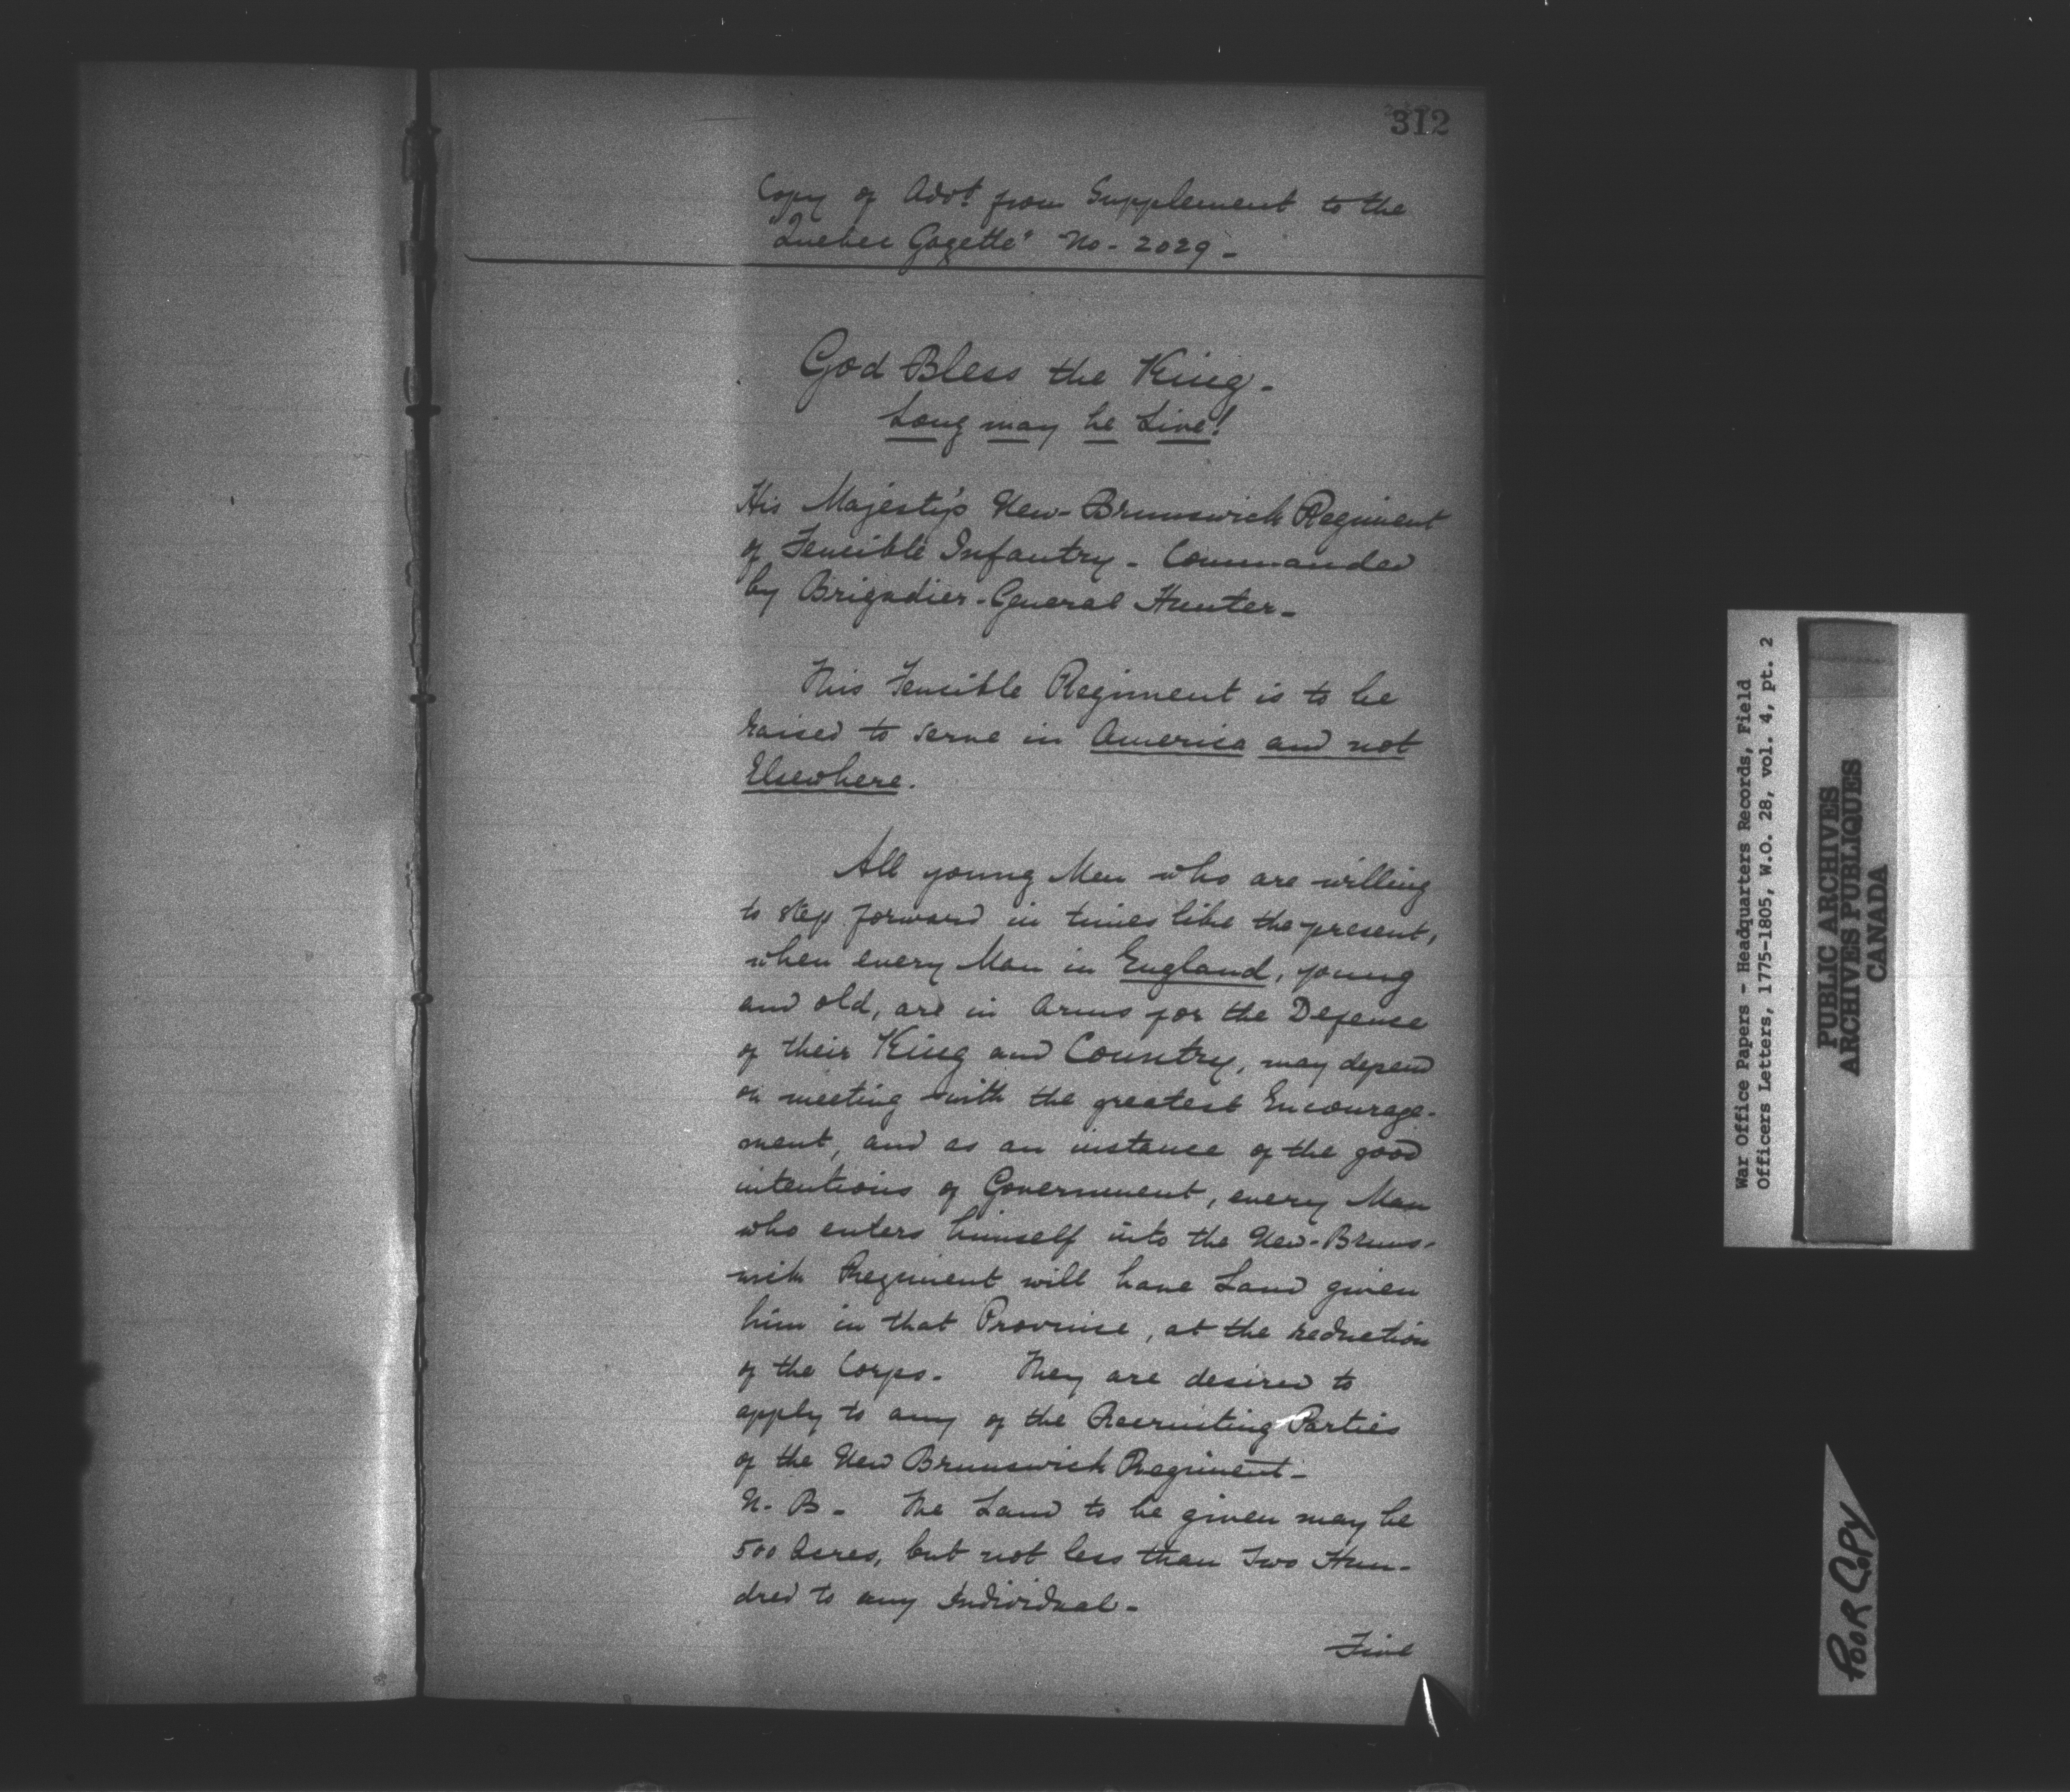 312
Copy of Advt. from Supplement to the
"Quebec Gazette" No - 2029 -
God Bless the King -
Long may he Live!
His Majesty's New-Brunswick Regiment
of Fencible Infantry - Commanded
by Brigadier-General Hunter -
This Fencible Regiment is to be
raised to serve in America and not
Elsewhere.
All young Men who are willing
to step forward in times like the present,
when every Man in England, young
and old, are in Arms for the Defense
of their King and Country, may depend
on meeting with the greatest Encourage-
ment, and as an instance of the good
intentions of Government, every Man
who enters himself into the New-Bruns-
wick Regiment will have Land given
him in that Province, at the reduction
of the Corps. They are desired to
apply to any of the Recruiting Parties
of the New Brunswick Regiment -
N. B - The Land to be given may be
500 Acres, but not less than Two Hun-
dred to any Individual -
Five
War Office Papers - Headquarters Records, Field
Officers Letters, 1775-1805, W.O. 28, vol. 4, pt. 2
PUBLIC ARCHIVES
ARCHIVES PUBLIQUES
CANADA
POOR COPY